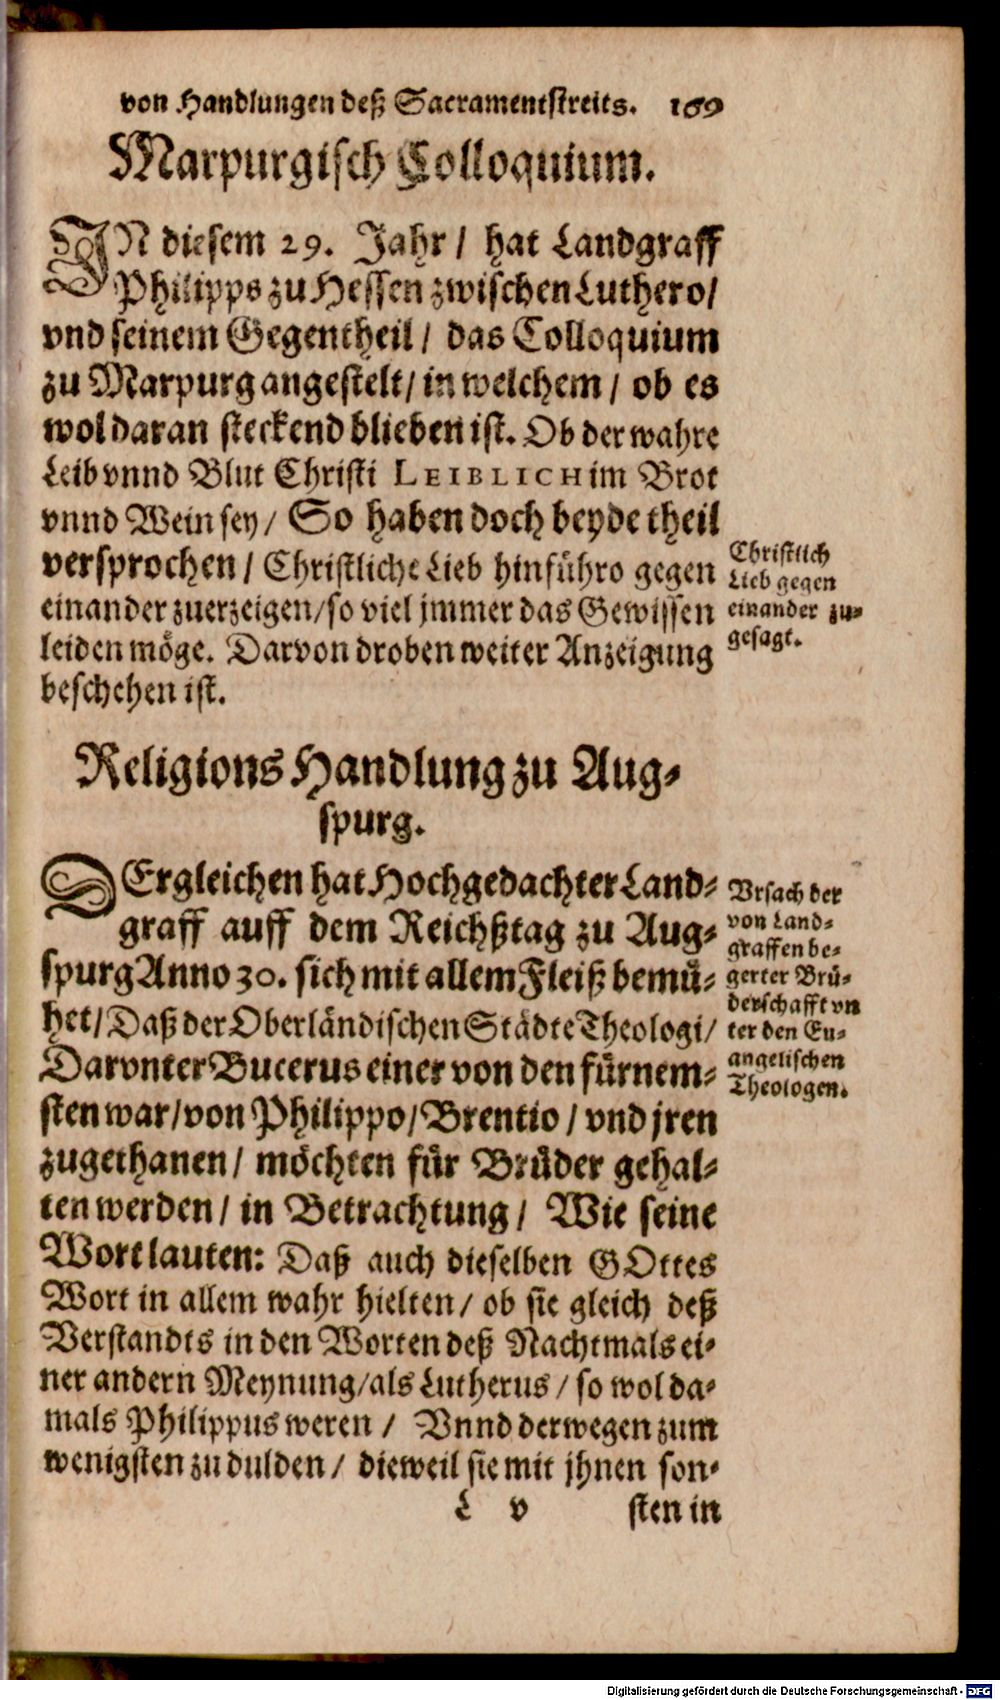 von Handlungen deß Sacramentstreits. 169
Marpurgisch Colloquium.
IN diesem 29. Jahr / hat Landgraff
Philipps zu Hessen zwischen Luthero /
vnd seinem Gegentheil / das Colloquium
zu Marpurg angestelt / in welchem / ob es
wol daran steckend blieben ist. Ob der wahre
Leib vnnd Blut Christi LEIBLICH im Brot
vnnd Wein sey / So haben doch beyde theil
versprochen / Christliche Lieb hinführo gegen
einander zuerzeigen / so viel jmmer das Gewissen
leiden möge. Darvon droben weiter Anzeigung
beschehen ist.
Christlich
Lieb gegen
einander zu-
gesagt.
Religions Handlung zu Aug-
spurg.
DErgleichen hat Hochgedachter Land-
graff auff dem Reichßtag zu Aug-
spurg Anno 30. sich mit allem Fleiß bemü-
het / Daß der Oberländischen Städte Theologi /
Darvnter Bucerus einer von den fürnem-
sten war / von Philippo / Brentio / vnd jren
zugethanen / möchten für Brüder gehal-
ten werden / in Betrachtung / Wie seine
Wort lauten: Daß auch dieselben GOttes
Wort in allem wahr hielten / ob sie gleich deß
Verstandts in den Worten deß Nachtmals ei-
ner andern Meynung / als Lutherus / so wol da-
mals Philippus weren / Vnnd derwegen zum
wenigsten zu dulden / dieweil sie mit jhnen son-
Vrsach der
von Land-
graffen be-
gerter Brü-
derschafft vn
ter den Eu-
angelischen
Theologen.
L v sten in
Digitalisierung gefördert durch die Deutsche Forschungsgemeinschaft - DFG